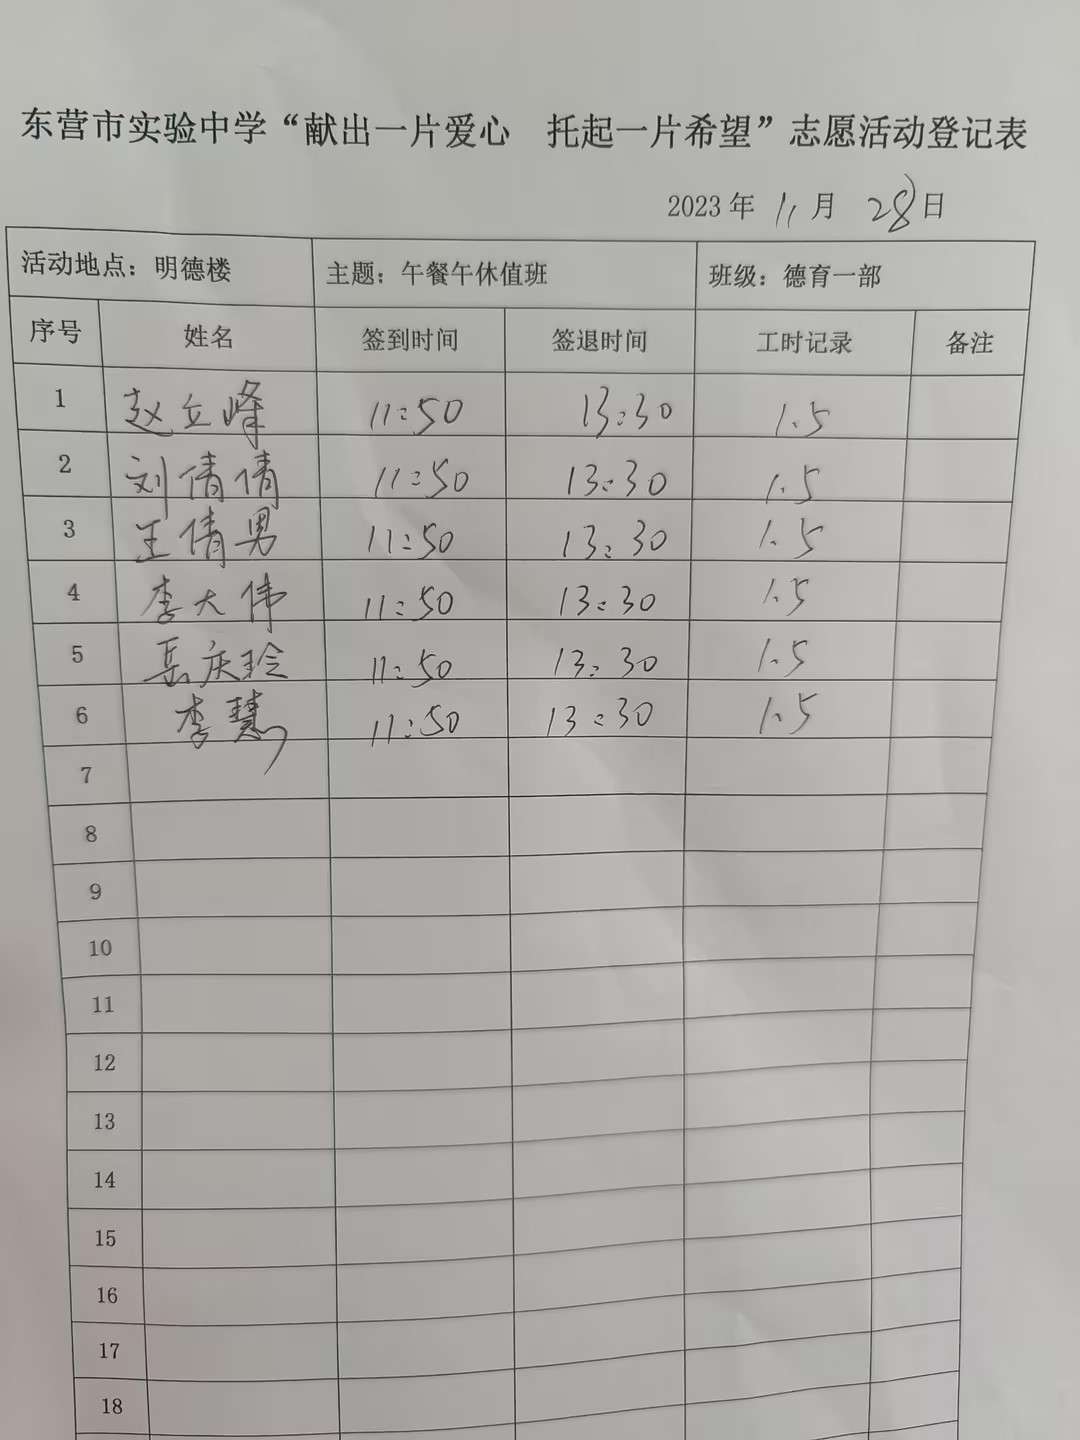 东营市实验中学“献出一片爱心 托起一片希望”志愿活动登记表
2023 年 11 月 28 日
活动地点：明德楼 主题：午餐午休值班 班级：德育一部
序号 姓名 签到时间 签退时间 工时记录 备注
1 赵立峰 11:50 13:30 1.5
2 刘倩倩 11:50 13:30 1.5
3 王倩男 11:50 13:30 1.5
4 李大伟 11:50 13:30 1.5
5 岳庆玲 11:50 13:30 1.5
6 李慧 11:50 13:30 1.5
7
8
9
10
11
12
13
14
15
16
17
18